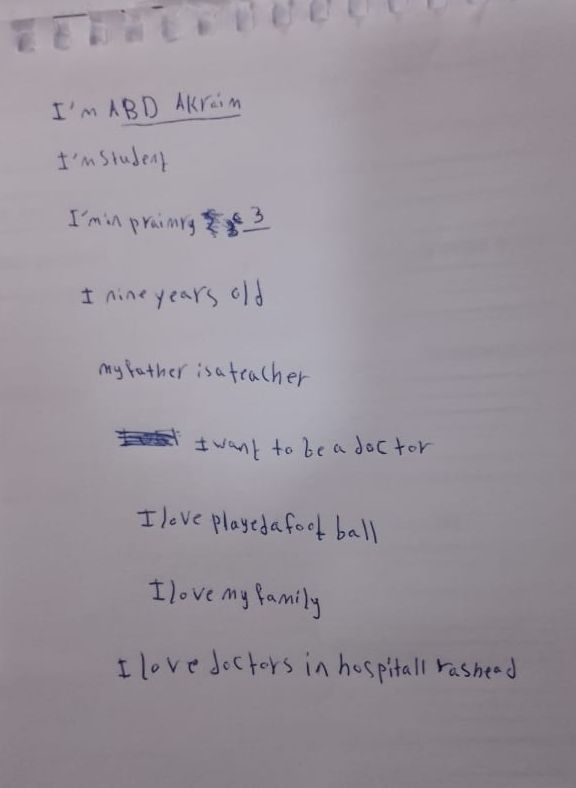 I'm ABD AKraim
I'm student
I'm in praimry 3
I nine years old
my father is a teacher
I want to be a doctor
I love played a foot ball
I love my family
I love doctors in hospitall rashead